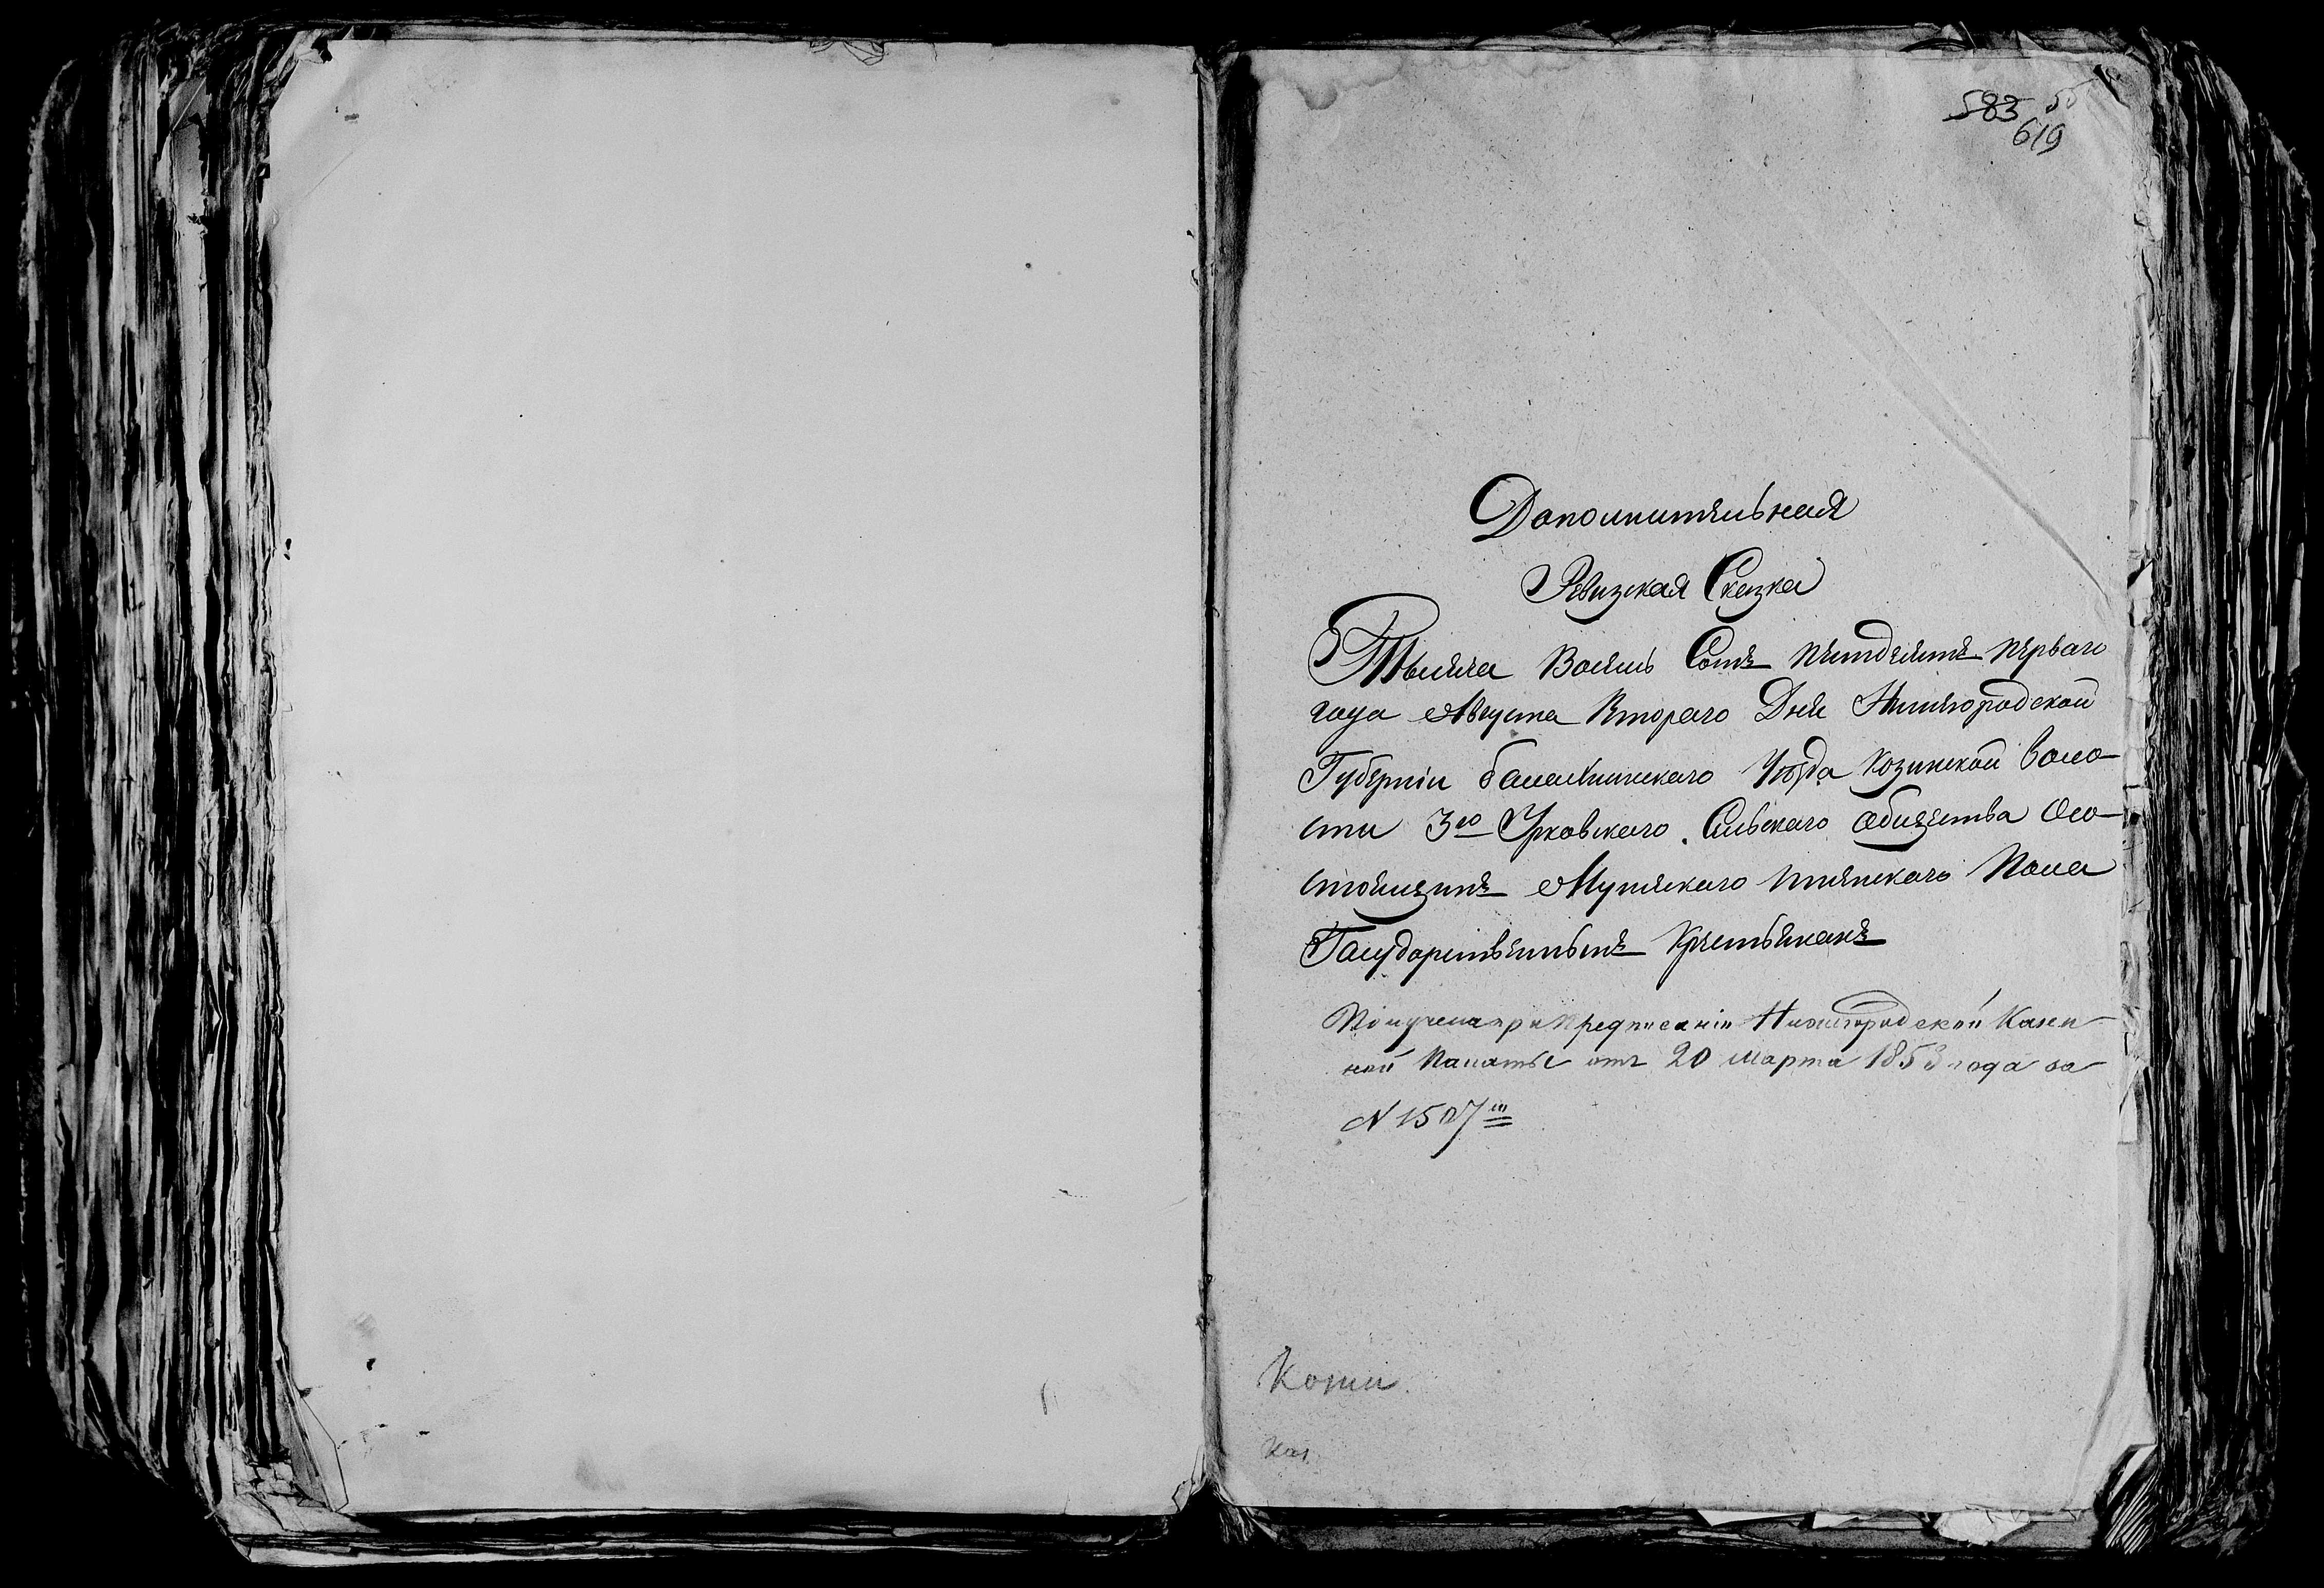 583 55
619
Дополнительная
Ревизская Сказка
Тысяча Восемь Сотъ пятдесятъ перваго
года Августа Втораго Дня Нижегородской
Губерніи балахнинскаго Уѣзда Козинской Воло-
сти 3го Урковскаго Сельскаго Общества О со-
стоящихъ Мужескаго Женскаго Пола
Государственныхъ Крестьянахъ
Получена при предписаніи Нижегородской Казен-
ной Палаты отъ 20 марта 1853 года за
N 1507
Копіи